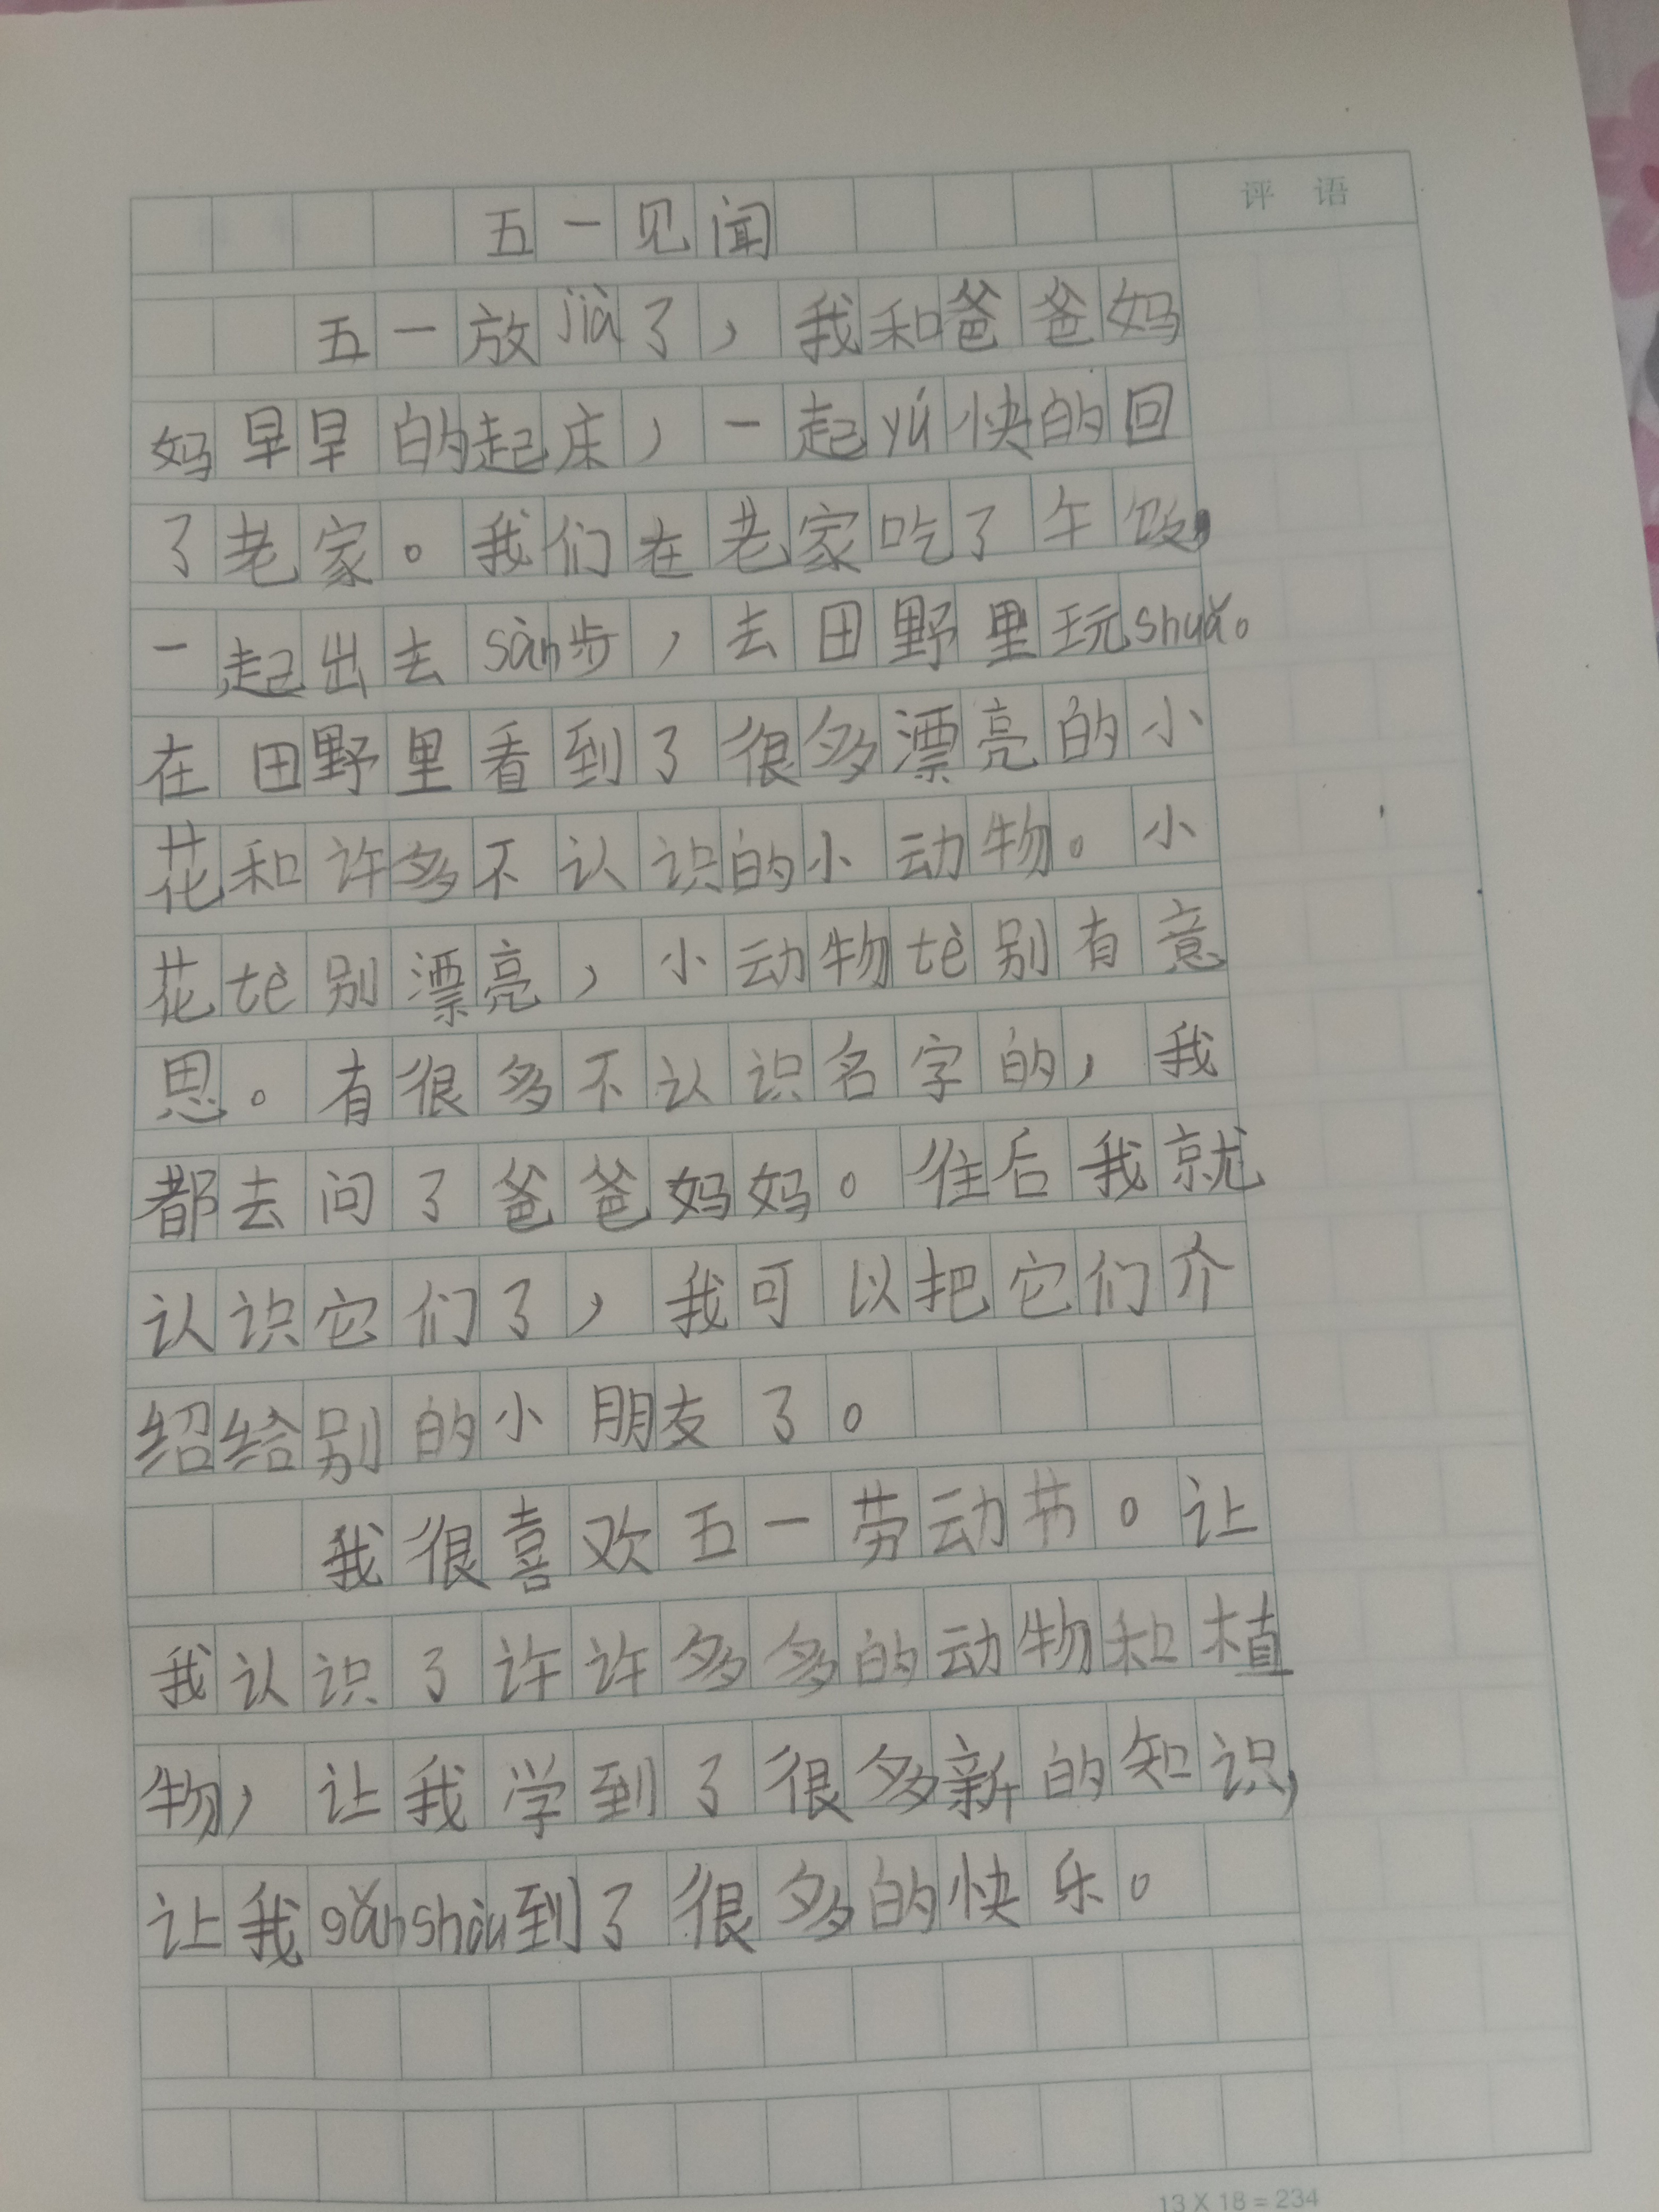 评 语
五一见闻
五一放jià了，我和爸爸妈
妈早早的起床，一起yú快的回
了老家。我们在老家吃了午饭，
一起出去sàn步，去田野里玩shuǎ。
在田野里看到了很多漂亮的小
花和许多不认识的小动物。小
花tè别漂亮，小动物tè别有意
思。有很多不认识名字的，我
都去问了爸爸妈妈。往后我就
认识它们了，我可以把它们介
绍给别的小朋友了。
我很喜欢五一劳动节。让
我认识了许许多多的动物和植
物，让我学到了很多新的知识，
让我gǎnshòu到了很多的快乐。
13 X 18 = 234